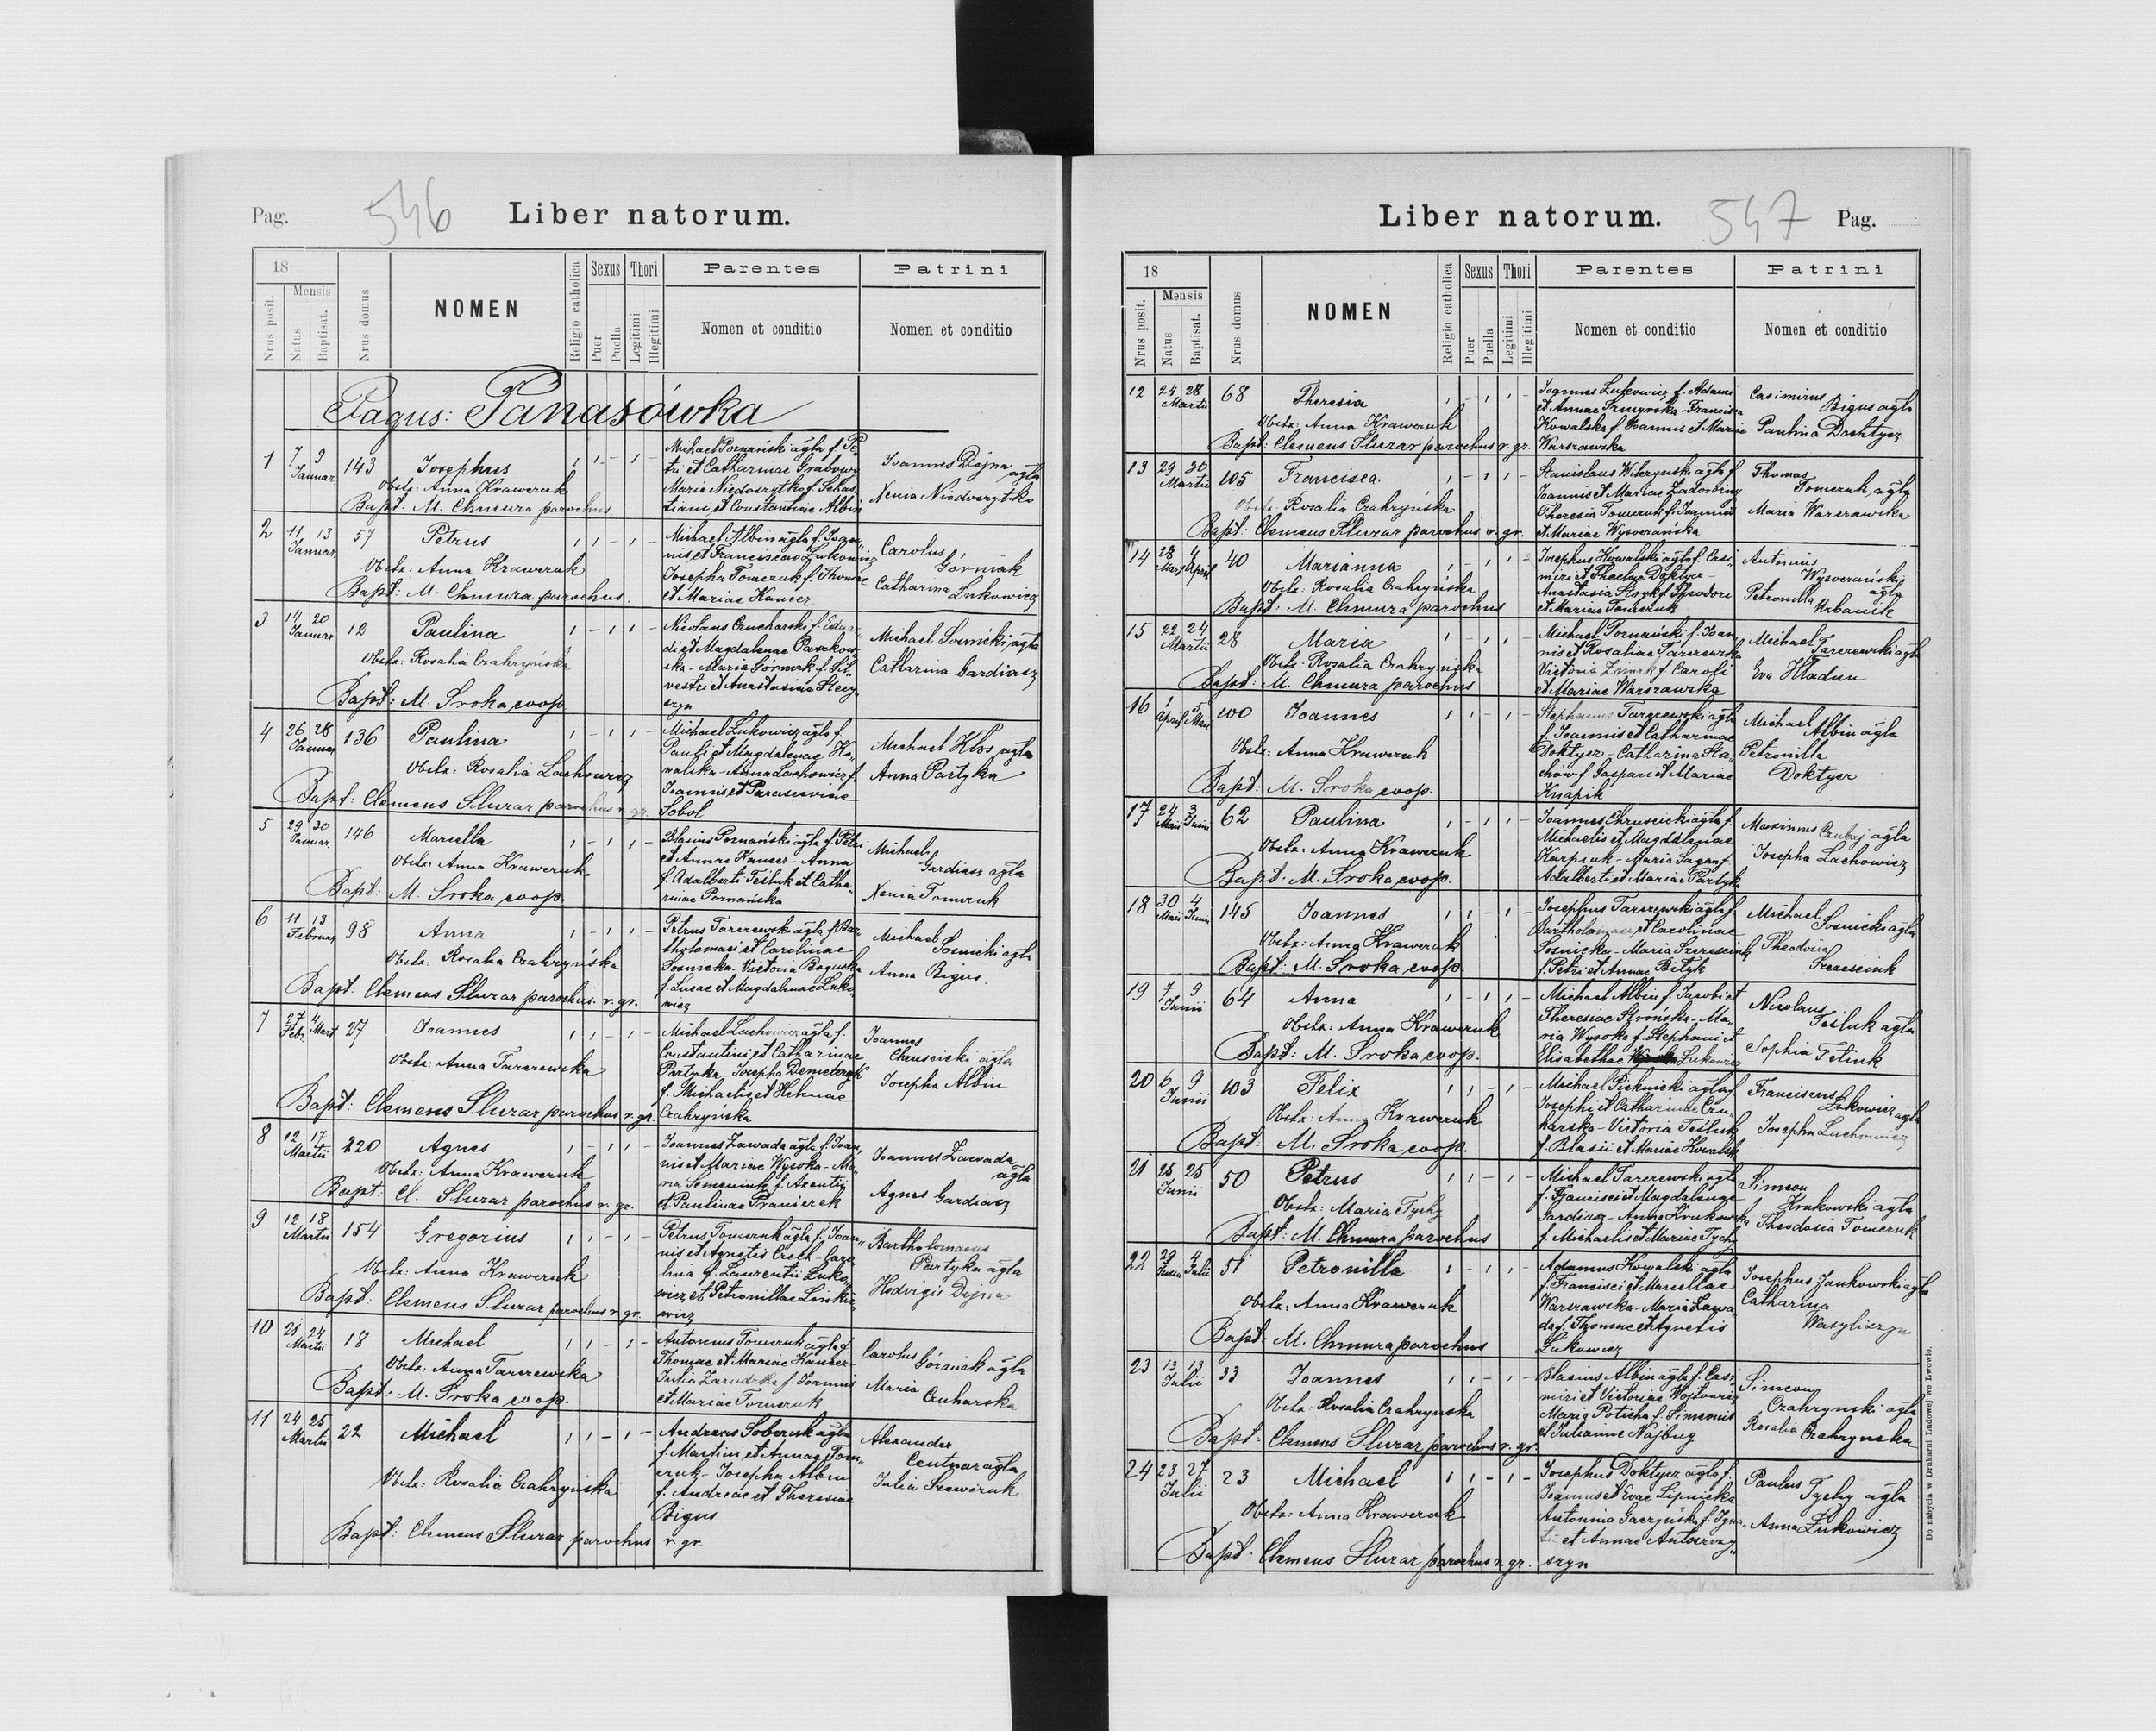 Pag.
546
Liber natorum.
18
Mensis
Nrus posit.
Natus
Baptisat.
Nrus domus
NOMEN
Religio catholica
Sexus
Puer
Puella
Thori
Legitimi
Illegitimi
Parentes
Nomen et conditio
Patrini
Nomen et conditio
Pagus: Panasówka
1 7 9 Januar. 143 Josephus
Obstx: Anna Krawczuk
Bapt: M. Chmura parochus.
Michael Poznański agla f. Pe-
tri et Catharinae Grabowy
Maria Niedoszytko f. Sebas-
tiani et Constantinae Albin
Joannes Dejna agla
Xenia Niedoszytko
2 11 13 Januar. 57 Petrus
Obstx: Anna Krawczuk
Bapt: M. Chmura parochus.
Michael Albin agla f. Joan-
nis et Franciscae Lukowicz
Josepha Tomczuk f. Thomae
et Mariae Kancer
Carolus Górniak
Catharina Lukowicz
3 14 20 Januar. 12 Paulina
Obstx: Rosalia Czahryńska
Bapt: M. Sroka coop.
Nicolaus Czucharski f.
di et Magdalenae
ska - Maria Górniak f. Sil-
vestri et Anastasiae Stecy-
szyn
Michael Sosnicki agla
Catharina Gardiasz
4 26 28 Januar 136 Paulina
Obstx: Rosalia Lachowicz
Bapt: Clemens Sluzar parochus r. gr.
Michael Lukowicz agla f.
Pauli et Magdalenae Ko-
walska - Anna Lachowicz f.
Joannis et Parascevinae
Sobol
Michael Kłos agla
Anna Partyka
5 29 30 Januar. 146 Marcella
Obstx: Anna Krawczuk
Bapt: M. Sroka coop.
Blasius Poznański agla f. Petri
et Annae Kancer - Anna
f. Adalberti Teśluk et Catha-
rinae Poznańska
Michael Gardiasz agla
Xenia Tomczuk
6 11 13 Februar 98 Anna
Obstx: Rosalia Czahryńska
Bapt: Clemens Sluzar parochus r. gr.
Petrus Tarczewski agla f. Bar-
tholomaei et Carolinae
Sosnicka - Victoria Boguska
f. Lucae et Magdalenae Luko-
wicz
Michael Sosnicki agla
Anna Bigus.
7 27 Febr. 4 Mart 27 Joannes
Obstx: Anna Tarczewska
Bapt: Clemens Sluzar parochus r. gr.
Michael Lachowicz agla f.
Constantini et Catharinae
Partyka, Josepha Demeterek
f. Michaelis et Helenae
Czahryńska
Joannes Chruscicki agla
Josepha Albin
8 12 17 Martii 220 Agnes
Obstx: Anna Krawczuk
Bapt: Cl. Sluzar parochus r. gr.
Joannes Zawada agla f. Joan-
nis et Mariae Wysoka - Ma-
ria Semeniuk f. Axentij
et Paulinae Pranierek
Joannes Zawada agla
Agnes Gardiasz
9 12 18 Martii 154 Gregorius
Obstx: Anna Krawczuk
Bapt: Clemens Sluzar parochus r. gr.
Petrus Tomczuk agla f. Joan-
nis et Agnetis - Caro-
lina f. Laurentii Luko-
wicz et Petronillae Linkie-
wicz
Bartholomaeus Partyka agla
Hedvigis Dejna
10 21 24 Martii 18 Michael
Obstx: Anna Tarczewska
Bapt: M. Sroka coop.
Antonius Tomczuk agla f.
Thomae et Mariae Kancer -
Julia Zarudzka f. Joannis
et Mariae Tomczuk
Carolus Górniak agla
Maria Czuharska
11 24 25 Martii 22 Michael
Obstx: Rosalia Czahryńska
Bapt: Clemens Sluzar parochus r. gr.
Andreas Sobczuk agla
f. Martini et Annae Tom-
czuk - Josepha Albin
f. Andreae et Theresiae
Bigus
Alexander Centnar agla
Julia Szewczuk
Liber natorum.
547
Pag.
18
Mensis
Nrus posit.
Natus
Baptisat.
Nrus domus
NOMEN
Religio catholica
Sexus
Puer
Puella
Thori
Legitimi
Illegitimi
Parentes
Nomen et conditio
Patrini
Nomen et conditio
12 24 28 Martii 68 Theresia
Obstx: Anna Krawczuk
Bapt: Clemens Sluzar parochus r. gr.
Joannes Lukowicz f. Adami
et Annae Szmyrska - Francisca
Kowalska f. Joannis et Mariae
Warszawska
Casimirus Bigus agla
Paulina Dochtycz
13 29 30 Martii 105 Francisca.
Obstx: Rosalia Czahryńska
Bapt: Clemens Sluzar parochus r. gr.
Stanislaus Wilczynski agla f.
Joannis et Mariae
Theresia Tomczuk f. Joannis
et Mariae Wysoczańska
Thomas Tomczuk agla
Maria Warszawska
14 28 Marz 4 April 40 Marianna
Obstx: Rosalia Czahryńska
Bapt: M. Chmura parochus
Josephus Kowalski agla f. Casi-
miri et Theclae Doktycz -
Anastasia Stryk f. Theodori
et Mariae Tomczuk
Antonius Wysoczański agla
Petronilla Urbanik
15 22 24 Martii 28 Maria
Obstx: Rosalia Czahryńska
Bapt: M. Chmura parochus
Michael Poznański f. Joan-
nis et Rosaliae Tarczewska
Victoria f. Caroli
et Mariae Warszawska
Michael Tarczewski agla
Eva Hładun
16 1 April 5 Maii 100 Joannes
Obstx: Anna Krawczuk
Bapt: M. Sroka coop.
Stephanus Tarczewski agla
f. Joannis et Catharinae
Doktycz - Catharina Sta-
chów f. Gaspari et Mariae
Knapik
Michael Albin agla
Petronilla Doktycz
17 24 Maii 3 Junii 62 Paulina
Obstx: Anna Krawczuk
Bapt: M. Sroka coop.
Joannes Chruscicki agla f.
Michaelis et Magdalenae
Karpiuk - Maria Sagan f.
Adalberti et Mariae Partyka
Maximus Czubaj agla
Josepha Lachowicz
18 30 Maii 4 Junii 145 Joannes
Obstx: Anna Krawczuk
Bapt: M. Sroka coop.
Josephus Tarczewski agla f.
Bartholomaei et Carolinae
Sosnicka - Maria
f. Petri et Annae Bityk
Michael Sosnicki agla
Theodosia
19 7 9 Junii 64 Anna
Obstx: Anna Krawczuk
Bapt: M. Sroka coop.
Michael Albin f. Jacobi et
Theresiae Strońska - Ma-
ria Wysoka f. Stephani et
Elisabethae Lukowicz
Nicolaus Teśluk agla
Sophia Fetiuk
20 6 9 Junii 103 Felix
Obstx: Anna Krawczuk
Bapt: M. Sroka coop.
Michael agla f.
Josephi et Catharinae Czu-
harska - Victoria Teśluk
f. Blasii et Mariae Kowalska
Franciscus Lukowicz agla
Josepha Lachowicz
21 25 25 Junii 50 Petrus
Obstx: Maria Tychy
Bapt: M. Chmura parochus
Michael Tarczewski agla
f. Francisci et Magdalenae
Gardiasz - Anna Krukowska
f. Michaelis et Mariae Tychy
Simeon Krukowski agla
Theodosia Tomczuk
22 29 Junii 4 Julii 51 Petronilla
Obstx: Anna Krawczuk
Bapt: M. Chmura parochus
Adamus Kowalski agla
f. Francisci et Marcellae
Warszawska - Maria Zawa-
da f. Thomae et Agnetis
Lukowicz
Josephus Jankowski agla
Catharina Wasyliszyn
23 13 13 Julii 33 Joannes
Obstx: Rosalia Czahrynska
Bapt: Clemens Sluzar parochus r. gr.
Blasius Albin agla f. Casi-
miri et Victoriae Wojtowicz
Maria Poticha f. Simeonis
et Julianne Najbug
Simeon Czahrynski agla
Rosalia Czahrynska
24 23 27 Julii 23 Michael
Obstx: Anna Krawczuk
Bapt: Clemens Sluzar parochus r. gr.
Josephus Doktycz agla f.
Joannis et Evae Lipnicka
Antonina Gaczyńska f. Igna-
tii et Annae Antoszczy-
szyn
Paulus Tychy agla
Anna Lukowicz
Do nabycia w Drukarni Ludowej we Lwowie.